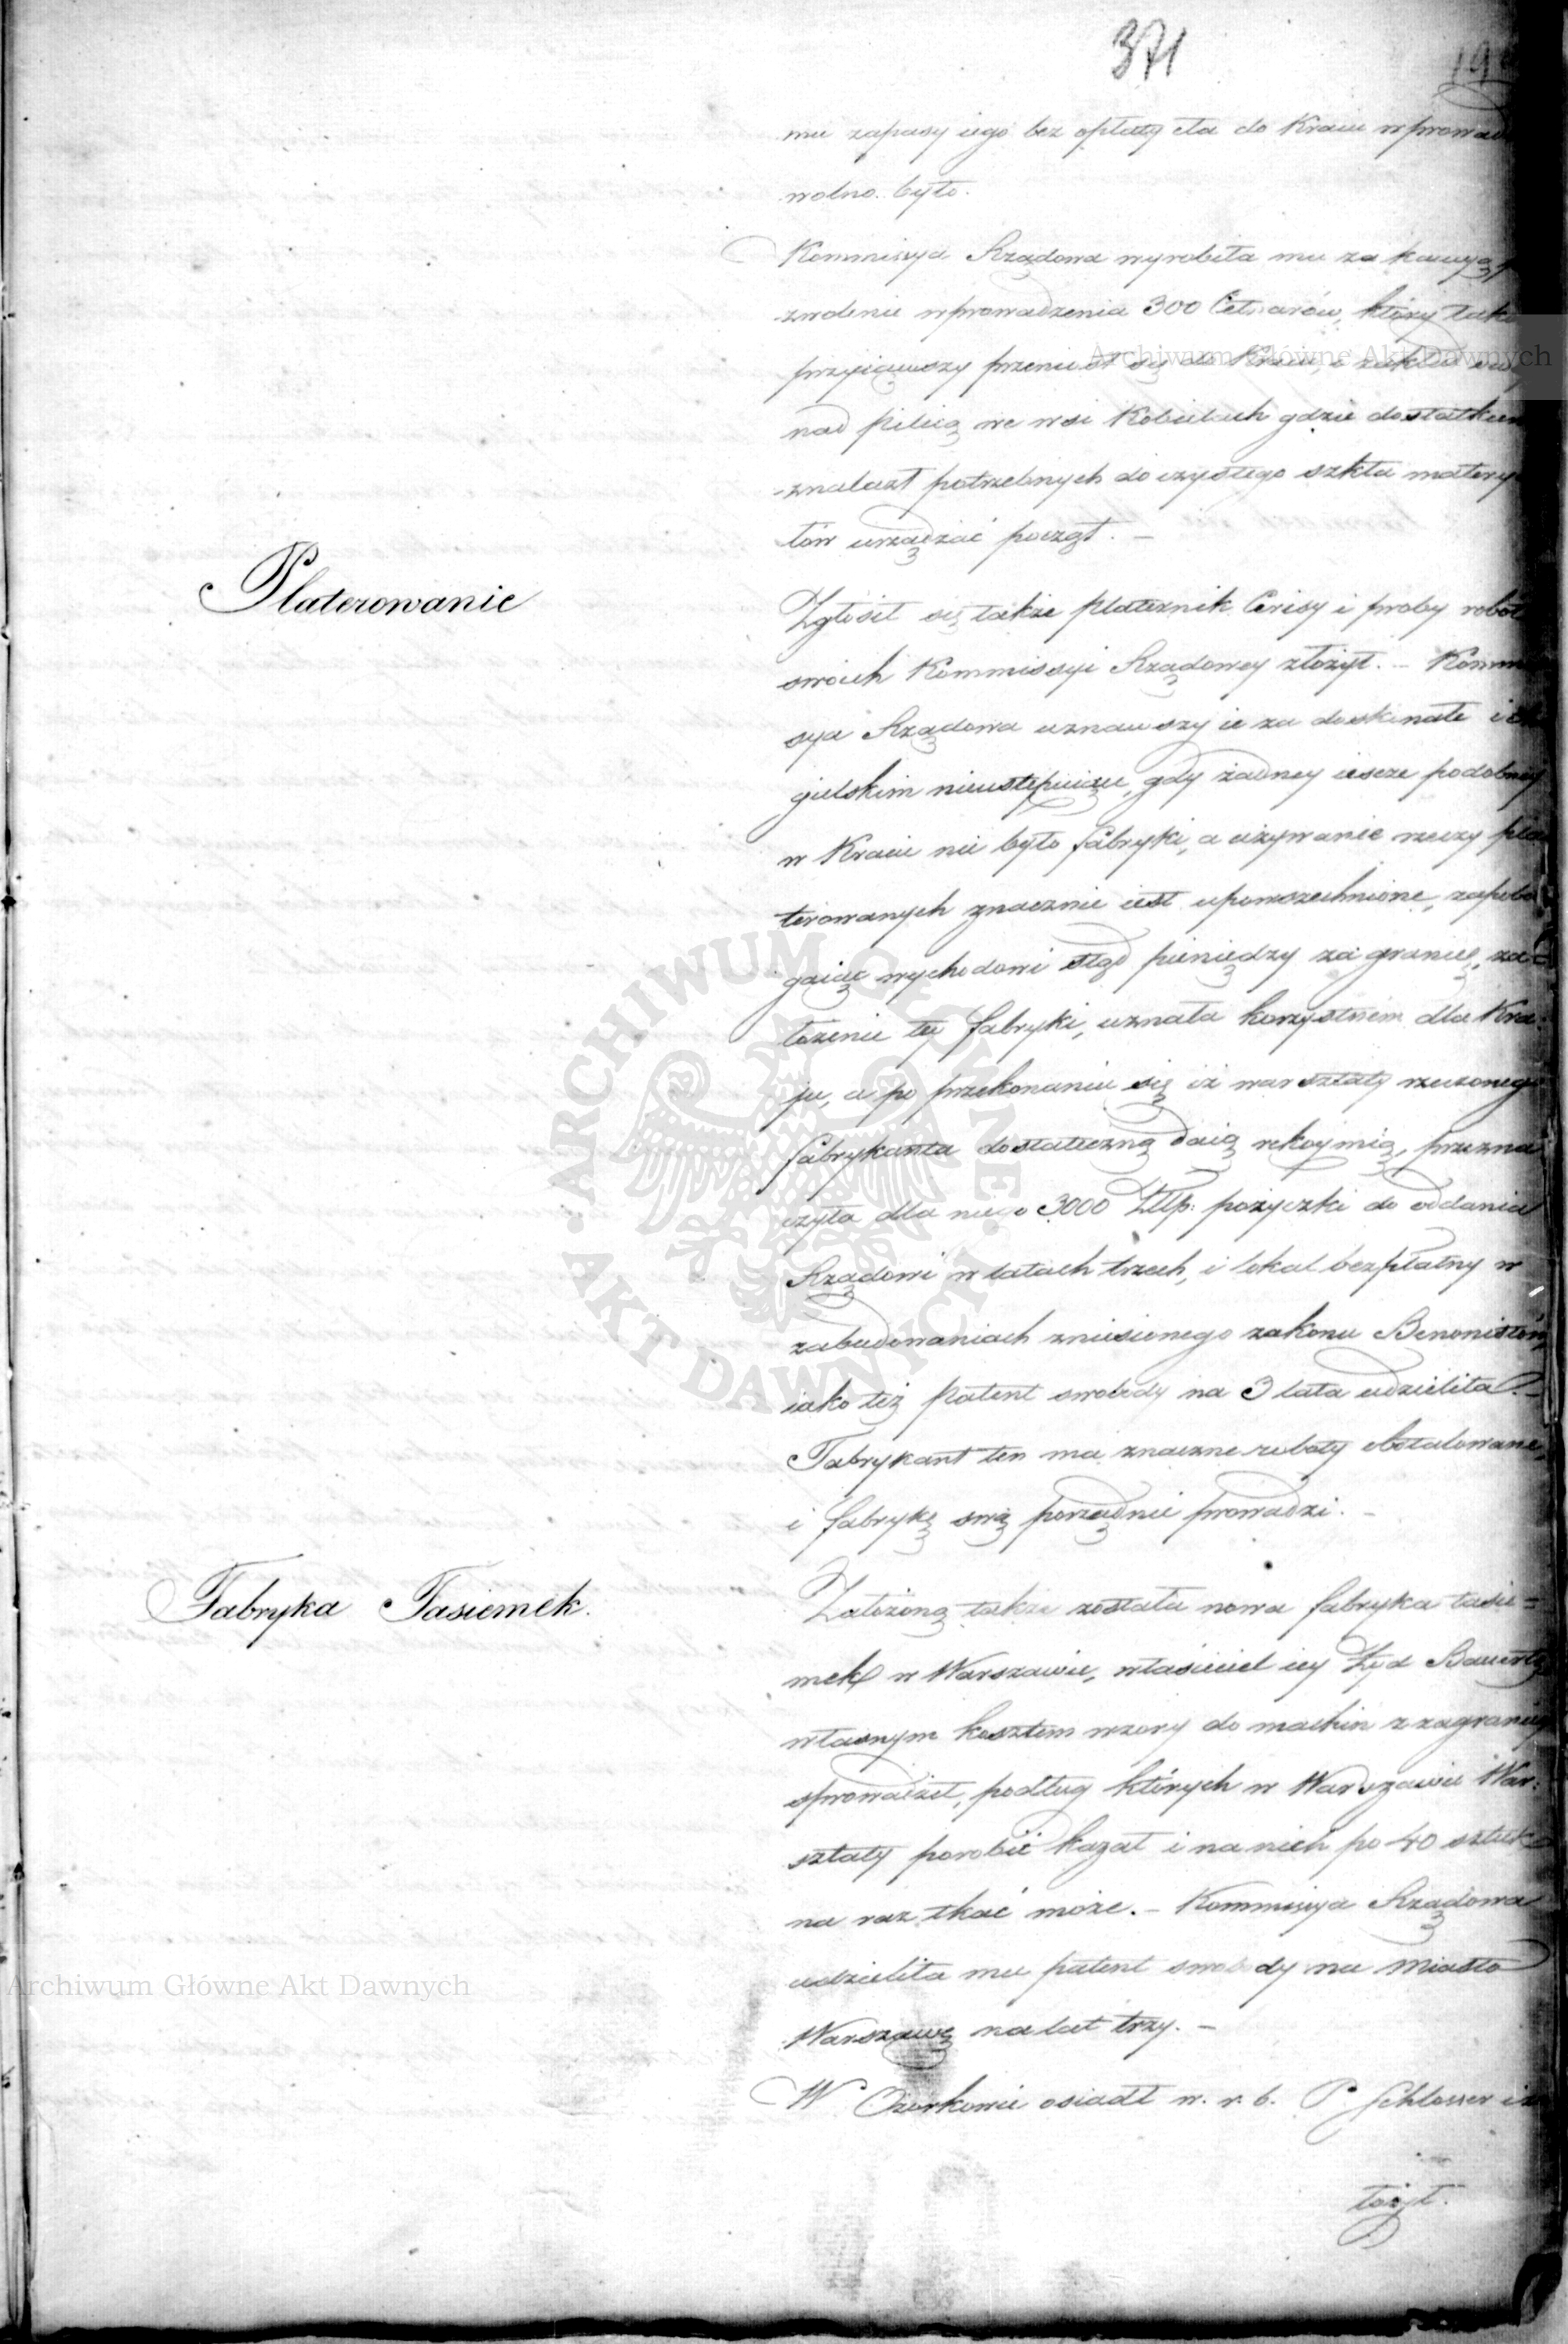 371
mu zapasy iego bez opłaty cła do Kraiu wprowad
wolno było.
Kommissya Rządowa wyrobiła mu za kaucyą
zwolenie wprowadzenia 300 Cetnarów, który tako
przyiąwszy przeniósł się do Kraiu, i zakład
nad Pilicą we wsi Kobielach gdzie dostatkiem
znalazł potrzebnych do czystego szkła matery
łów urządzać począł. —
Platerowanie
Zgłosił się także platernik Cerisy i proby robot
swoich Kommissyi Rządowey złożył. — Kommi
sya Rządowa uznawszy ie za doskonałe i
gielskim nieustępuiące, gdy żadney ieszcze podobney
w Kraiu nie było fabryki, a używanie rzeczy pla
terowanych znacznie iest upowszechnione, zapobie
gaiąc wychodowi stąd pieniędzy za granicę, za=
łożenie tey fabryki, uznała korzystnem dla Kra=
ju, a po przekonaniu się iż warsztaty rzeczonego
fabrykanta dostateczną daią rękoymią, przezna
czyła dla niego 3000 Złłp: pożyczki do oddania
Rządowi w latach trzech, i lokal bezpłatny w
zabudowaniach zniesionego zakonu Benonistów,
iako też patent swobody na 3 lata udzieliła. —
Fabrykant ten ma znaczne roboty obstalowane,
i fabrykę swą porządnie prowadzi. —
Fabryka Tasiemek.
Założoną także została nowa fabryka tasie=
mek w Warszawie, właściciel iey Żyd
własnym kosztem wzory do machin z zagranicy
sprowadził, podług których w Warszawie War=
sztaty porobić kazał i na nich po 40 sztuk
na raz tkać może. — Kommissya Rządowa
udzieliła mu patent swobody na Miasto
Warszawę na lat trzy. —
W Ozorkowie osiadł w. r. b. P. Schlosser i za
łożył.
Archiwum Główne Akt Dawnych
Archiwum Główne Akt Dawnych
ARCHIWUM GŁÓWNE AKT DAWNYCH